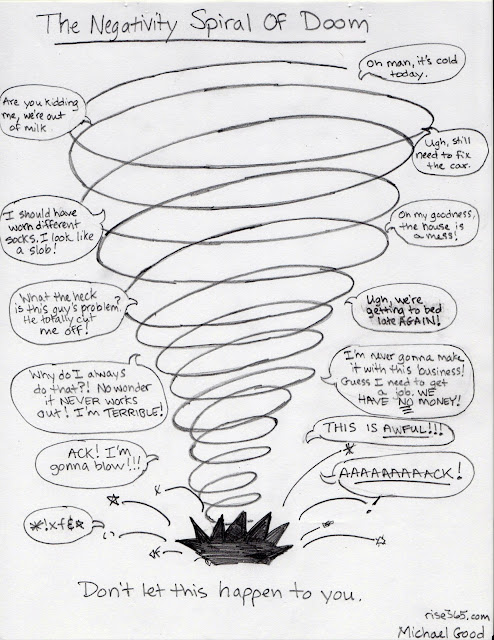 The Negativity Spiral Of Doom
Oh man, it's cold
today.
Are you kidding
me, we're out
of milk.
Ugh, still
need to fix
the car.
I should have
worn different
socks. I look like
a slob!
Oh my goodness,
the house is
a mess!
What the heck
is this guy's problem?
He totally cut
me off!
Ugh, we're
getting to bed
late AGAIN!
Why do I always
do that?! No wonder
it NEVER works
out! I'm TERRIBLE!
I'm never gonna make
it with this business!
Guess I need to get
a job. WE
HAVE NO MONEY!
THIS IS AWFUL!!!
ACK! I'm
gonna blow!!!
AAAAAAAAACK!
*!xf&☆
Don't let this happen to you.
rise365.com
Michael Good